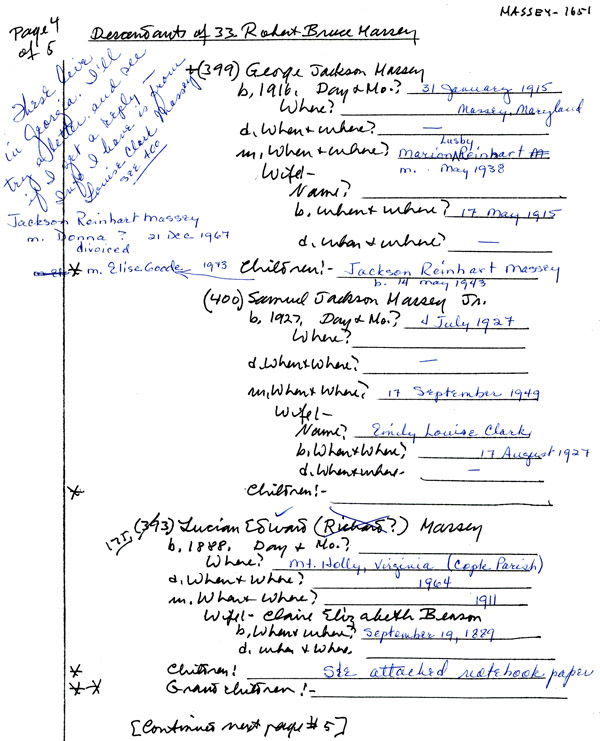 MASSEY-1651
Page 4
of 5
Descendants of 33. Robert Bruce Massey
These live
in Georgia. I'll
try a letter and see
if I get a reply —
Info I have is from
Louise Clark Massey
see 400
(399) George Jackson Massey
b. 1916. Day & Mo.? 31 January 1915
Where? Massey, Maryland
d. When & where? —
Lusby
m. When & Where? Marion Reinhart
Wife1- m. May 1938
Name?
b. When & where? 17 May 1915
Jackson Reinhart Massey
m. Donna ? 21 Dec 1967
divorced
d. when & where? —
* m. Elise Goode 1973
Children:- Jackson Reinhart Massey
b. 14 May 1943
(400) Samuel Jackson Massey Jr.
b. 1927, Day & Mo.? 4 July 1927
Where?
d. When & Where? —
m. When & Where? 17 September 1949
Wife1-
Name? Emily Louise Clark
b. When & Where? 17 August 1927
d. When & where- —
* Children:-
175 (393) Lucian Edward (Richard?) Massey
b. 1888, Day & Mo.?
Where? Mt. Holly, Virginia (Cople Parish)
d. When & Where? 1964
m. When & Where? 1911
Wife1- Claire Elizabeth Benson
b. When & where? September 19, 1889
d. when & Where.
* Children! See attached notebook paper
* * Grandchildren:-
[Continues next page #5]